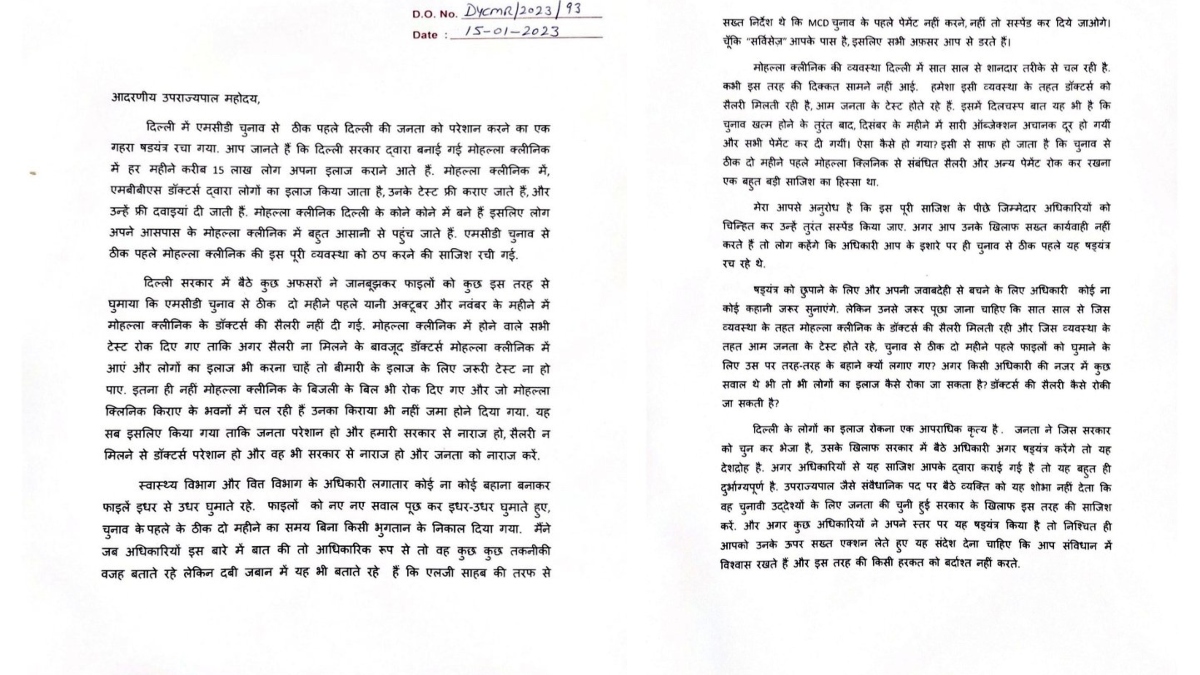 D.O. No. DyCMR/2023/93
Date : 15-01-2023
आदरणीय उपराज्यपाल महोदय,
दिल्ली में एमसीडी चुनाव से ठीक पहले दिल्ली की जनता को परेशान करने का एक
गहरा षडयंत्र रचा गया. आप जानते हैं कि दिल्ली सरकार द्वारा बनाई गई मोहल्ला क्लीनिक
में हर महीने करीब 15 लाख लोग अपना इलाज कराने आते हैं. मोहल्ला क्लीनिक में,
एमबीबीएस डॉक्टर्स द्वारा लोगों का इलाज किया जाता है, उनके टेस्ट फ्री कराए जाते हैं, और
उन्हें फ्री दवाइयां दी जाती हैं. मोहल्ला क्लीनिक दिल्ली के कोने कोने में बने हैं इसलिए लोग
अपने आसपास के मोहल्ला क्लीनिक में बहुत आसानी से पहुंच जाते हैं. एमसीडी चुनाव से
ठीक पहले मोहल्ला क्लीनिक की इस पूरी व्यवस्था को ठप करने की साजिश रची गई.
दिल्ली सरकार में बैठे कुछ अफसरों ने जानबूझकर फाइलों को कुछ इस तरह से
घुमाया कि एमसीडी चुनाव से ठीक दो महीने पहले यानी अक्टूबर और नवंबर के महीने में
मोहल्ला क्लीनिक के डॉक्टर्स की सैलरी नहीं दी गई. मोहल्ला क्लीनिक में होने वाले सभी
टेस्ट रोक दिए गए ताकि अगर सैलरी ना मिलने के बावजूद डॉक्टर्स मोहल्ला क्लीनिक में
आएं और लोगों का इलाज भी करना चाहें तो बीमारी के इलाज के लिए जरूरी टेस्ट ना हो
पाए. इतना ही नहीं मोहल्ला क्लीनिक के बिजली के बिल भी रोक दिए गए और जो मोहल्ला
क्लिनिक किराए के भवनों में चल रही हैं उनका किराया भी नहीं जमा होने दिया गया. यह
सब इसलिए किया गया ताकि जनता परेशान हो और हमारी सरकार से नाराज हो, सैलरी न
मिलने से डॉक्टर्स परेशान हो और वह भी सरकार से नाराज हो और जनता को नाराज करें.
स्वास्थ्य विभाग और वित्त विभाग के अधिकारी लगातार कोई ना कोई बहाना बनाकर
फाइलें इधर से उधर घुमाते रहे. फाइलों को नए नए सवाल पूछ कर इधर-उधर घुमाते हुए,
चुनाव के पहले के ठीक दो महीने का समय बिना किसी भुगतान के निकाल दिया गया. मैंने
जब अधिकारियों इस बारे में बात की तो आधिकारिक रूप से तो वह कुछ कुछ तकनीकी
वजह बताते रहे लेकिन दबी जबान में यह भी बताते रहे हैं कि एलजी साहब की तरफ से
सख्त निर्देश थे कि MCD चुनाव के पहले पेमेंट नहीं करने, नहीं तो सस्पेंड कर दिये जाओगे।
चूँकि “सर्विसेज़” आपके पास है, इसलिए सभी अफ़सर आप से डरते हैं।
मोहल्ला क्लीनिक की व्यवस्था दिल्ली में सात साल से शानदार तरीके से चल रही है.
कभी इस तरह की दिक्कत सामने नहीं आई. हमेशा इसी व्यवस्था के तहत डॉक्टर्स को
सैलरी मिलती रही है, आम जनता के टेस्ट होते रहे हैं. इसमें दिलचस्प बात यह भी है कि
चुनाव खत्म होने के तुरंत बाद, दिसंबर के महीने में सारी ऑब्जेक्शन अचानक दूर हो गयीं
और सभी पेमेंट कर दी गयीं। ऐसा कैसे हो गया? इसी से साफ हो जाता है कि चुनाव से
ठीक दो महीने पहले मोहल्ला क्लिनिक से संबंधित सैलरी और अन्य पेमेंट रोक कर रखना
एक बहुत बड़ी साजिश का हिस्सा था.
मेरा आपसे अनुरोध है कि इस पूरी साजिश के पीछे जिम्मेदार अधिकारियों को
चिन्हित कर उन्हें तुरंत सस्पेंड किया जाए. अगर आप उनके खिलाफ सख्त कार्यवाही नहीं
करते हैं तो लोग कहेंगे कि अधिकारी आप के इशारे पर ही चुनाव से ठीक पहले यह षड्यंत्र
रच रहे थे.
षड्यंत्र को छुपाने के लिए और अपनी जवाबदेही से बचने के लिए अधिकारी कोई ना
कोई कहानी जरूर सुनाएंगे. लेकिन उनसे जरूर पूछा जाना चाहिए कि सात साल से जिस
व्यवस्था के तहत मोहल्ला क्लीनिक के डॉक्टर्स की सैलरी मिलती रही और जिस व्यवस्था के
तहत आम जनता के टेस्ट होते रहे, चुनाव से ठीक दो महीने पहले फाइलों को घुमाने के
लिए उस पर तरह-तरह के बहाने क्यों लगाए गए? अगर किसी अधिकारी की नजर में कुछ
सवाल थे भी तो भी लोगों का इलाज कैसे रोका जा सकता है? डॉक्टर्स की सैलरी कैसे रोकी
जा सकती है?
दिल्ली के लोगों का इलाज रोकना एक आपराधिक कृत्य है . जनता ने जिस सरकार
को चुन कर भेजा है, उसके खिलाफ सरकार में बैठे अधिकारी अगर षड्यंत्र करेंगे तो यह
देशद्रोह है. अगर अधिकारियों से यह साजिश आपके द्वारा कराई गई है तो यह बहुत ही
दुर्भाग्यपूर्ण है. उपराज्यपाल जैसे संवैधानिक पद पर बैठे व्यक्ति को यह शोभा नहीं देता कि
वह चुनावी उद्देश्यों के लिए जनता की चुनी हुई सरकार के खिलाफ इस तरह की साजिश
करें. और अगर कुछ अधिकारियों ने अपने स्तर पर यह षड्यंत्र किया है तो निश्चित ही
आपको उनके ऊपर सख्त एक्शन लेते हुए यह संदेश देना चाहिए कि आप संविधान में
विश्वास रखते हैं और इस तरह की किसी हरकत को बर्दाश्त नहीं करते.